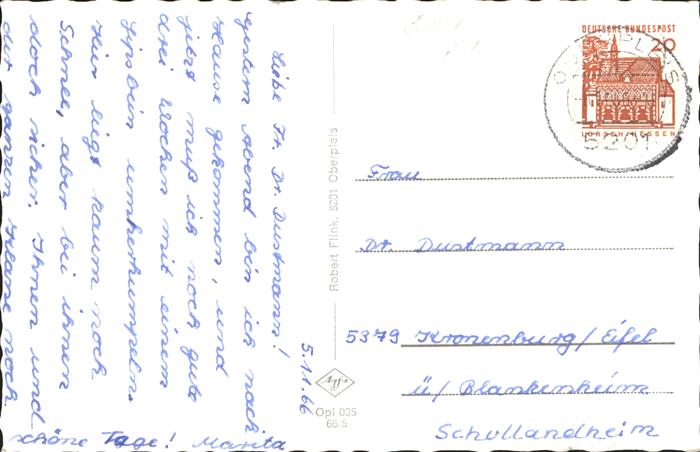 Liebe Fr. Dr. Dustmann!
gestern Abend bin ich nach
Hause gekommen, und
jetzt muß ich noch gute
drei Wochen mit einem
Gipsbein umherhumpeln.
Hier liegt kaum noch
Schnee, aber bei ihnen
doch sicher. Ihnen und
der ganzen Klasse noch
schöne Tage! Marita
5.11.66
Robert Flink, 5201 Oberpleis
Agfa
Opi 035
66/5
DEUTSCHE BUNDESPOST
20
LORSCH/HESSEN
OBERPLEIS
5201
Frau
Dr. Dustmann
5379 Kronenburg/Eifel
ü/Blankenheim
Schullandheim